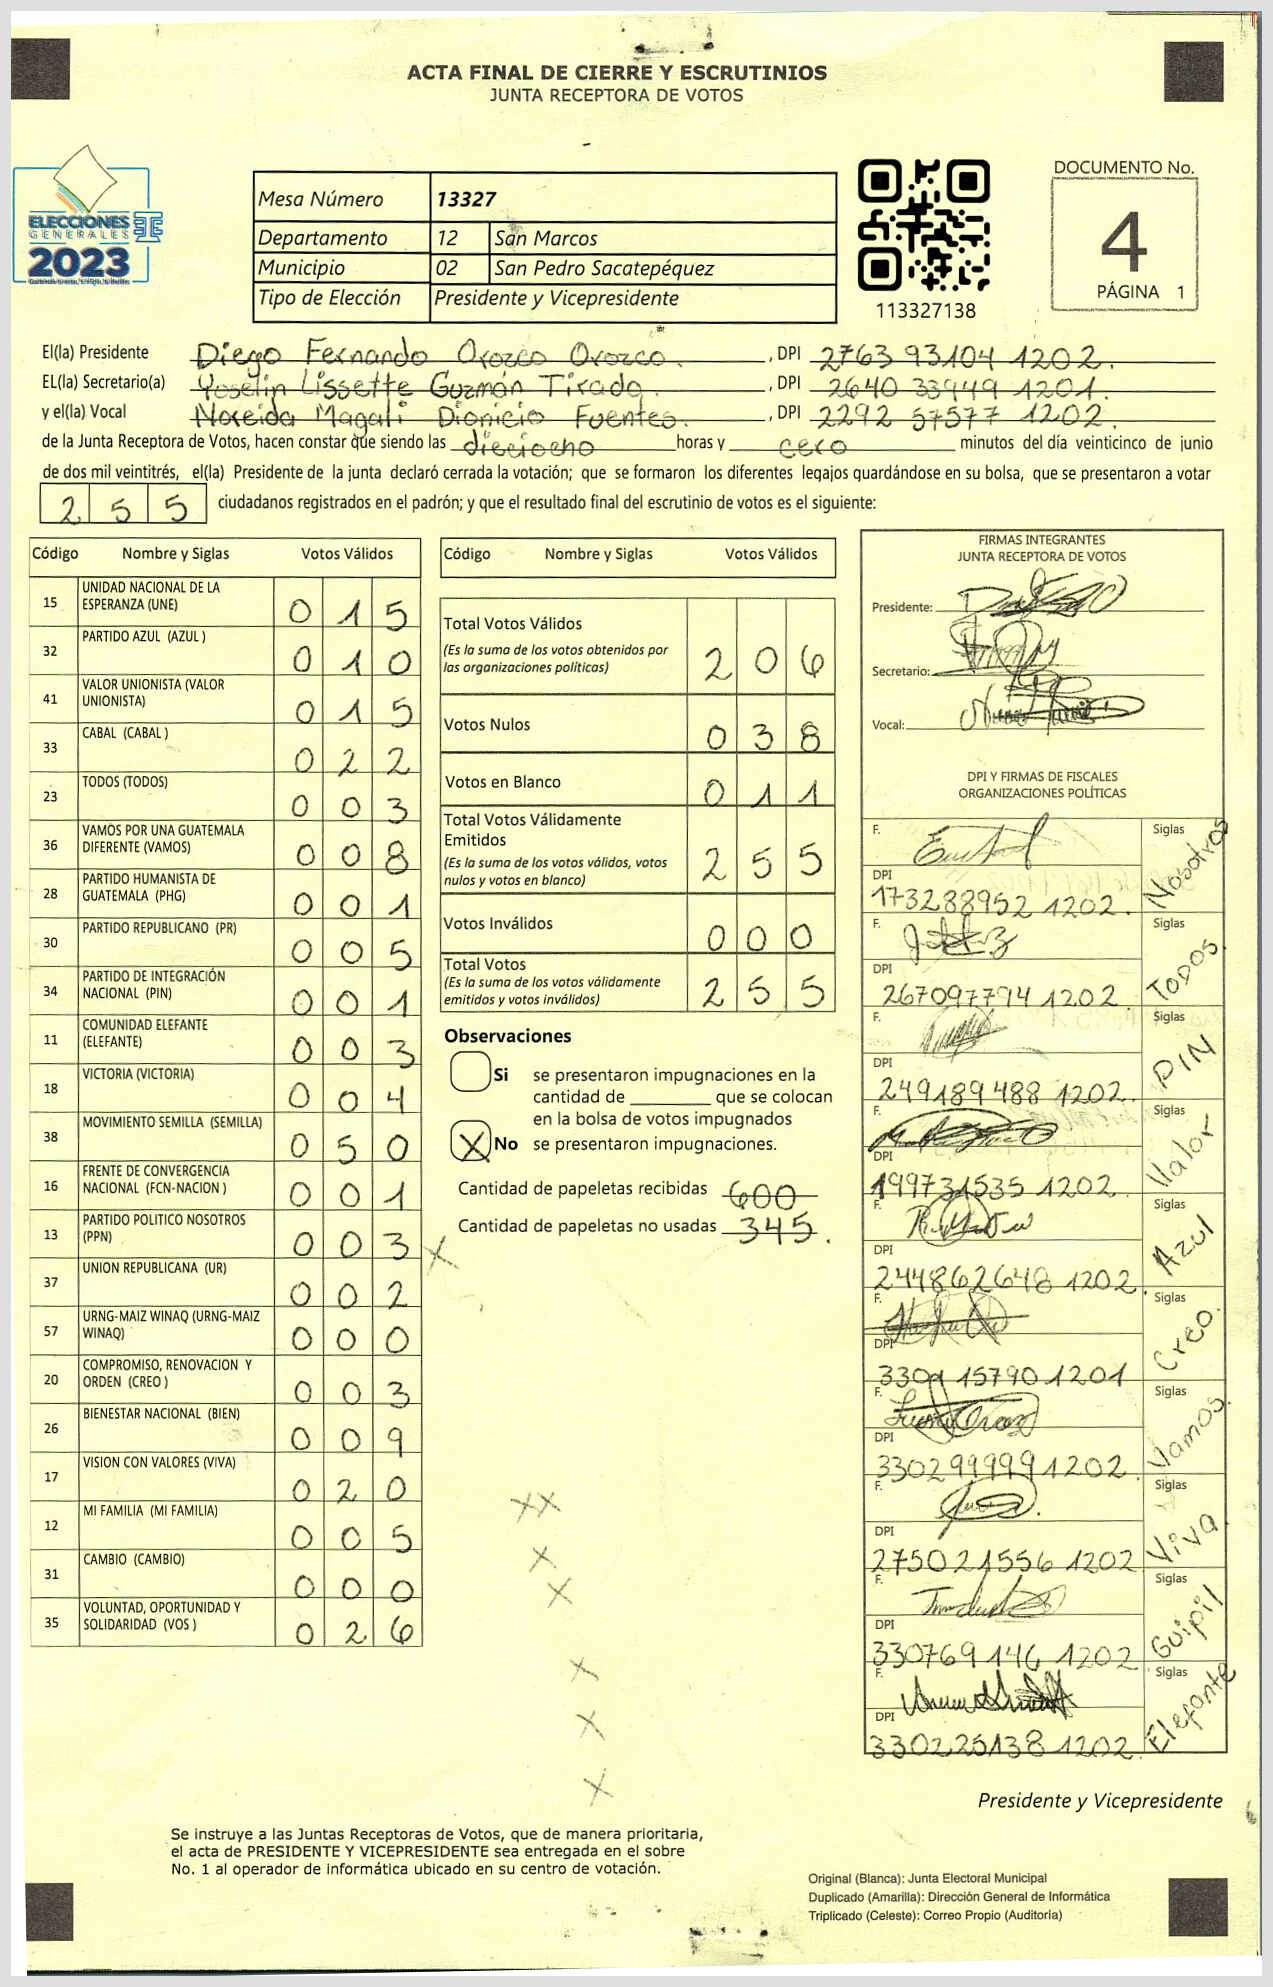 ACTA FINAL DE CIERRE Y ESCRUTINIOS
JUNTA RECEPTORA DE VOTOS
ELECCIONES
GENERALES
2023
Mesa Número 13327
Departamento 12 San Marcos
Municipio 02 San Pedro Sacatepéquez
Tipo de Elección Presidente y Vicepresidente
113327138
DOCUMENTO No.
4
PÁGINA 1
El(la) Presidente Diego Fernando Orozco Orozco. , DPI 2763 93104 1202.
EL(la) Secretario(a) Yoselin Lissette Guzmán Tirado. , DPI 2640 33949 1201.
y el(la) Vocal Noreida Magali Dionicio Fuentes. , DPI 2292 57577 1202.
de la Junta Receptora de Votos, hacen constar que siendo las dieciocho horas y cero minutos del día veinticinco de junio
de dos mil veintitrés, el(la) Presidente de la junta declaró cerrada la votación; que se formaron los diferentes legajos quardándose en su bolsa, que se presentaron a votar
255 ciudadanos registrados en el padrón; y que el resultado final del escrutinio de votos es el siguiente:
Código Nombre y Siglas Votos Válidos
15 UNIDAD NACIONAL DE LA ESPERANZA (UNE) 015
32 PARTIDO AZUL (AZUL ) 010
41 VALOR UNIONISTA (VALOR UNIONISTA) 015
33 CABAL (CABAL ) 022
23 TODOS (TODOS) 003
36 VAMOS POR UNA GUATEMALA DIFERENTE (VAMOS) 008
28 PARTIDO HUMANISTA DE GUATEMALA (PHG) 001
30 PARTIDO REPUBLICANO (PR) 005
34 PARTIDO DE INTEGRACIÓN NACIONAL (PIN) 001
11 COMUNIDAD ELEFANTE (ELEFANTE) 003
18 VICTORIA (VICTORIA) 004
38 MOVIMIENTO SEMILLA (SEMILLA) 050
16 FRENTE DE CONVERGENCIA NACIONAL (FCN-NACION ) 001
13 PARTIDO POLITICO NOSOTROS (PPN) 003 X
37 UNION REPUBLICANA (UR) 002
57 URNG-MAIZ WINAQ (URNG-MAIZ WINAQ) 000
20 COMPROMISO, RENOVACION Y ORDEN (CREO ) 003
26 BIENESTAR NACIONAL (BIEN) 009
17 VISION CON VALORES (VIVA) 020
12 MI FAMILIA (MI FAMILIA) 005
31 CAMBIO (CAMBIO) 000
35 VOLUNTAD, OPORTUNIDAD Y SOLIDARIDAD (VOS ) 026
Código Nombre y Siglas Votos Válidos
Total Votos Válidos 206
(Es la suma de los votos obtenidos por
las organizaciones políticas)
Votos Nulos 038
Votos en Blanco 011
Total Votos Válidamente
Emitidos 255
(Es la suma de los votos válidos, votos
nulos y votos en blanco)
Votos Inválidos 000
Total Votos 255
(Es la suma de los votos válidamente
emitidos y votos inválidos)
Observaciones
Si se presentaron impugnaciones en la
cantidad de ________ que se colocan
en la bolsa de votos impugnados
X No se presentaron impugnaciones.
Cantidad de papeletas recibidas 600
Cantidad de papeletas no usadas 345.
XX
X
X
X
X
X
FIRMAS INTEGRANTES
JUNTA RECEPTORA DE VOTOS
Presidente:
Secretario:
Vocal:
DPI Y FIRMAS DE FISCALES
ORGANIZACIONES POLÍTICAS
F. Siglas Nosotros
DPI 173288952 1202.
F. Siglas TODOS
DPI 267097794 1202.
F. Siglas PIN
DPI 249189488 1202.
F. Siglas Valor
DPI 199731535 1202.
F. Siglas Azul
DPI 244862648 1202.
F. Siglas Creo.
DPI 3301 15790 1201
F. Siglas Vamos.
DPI 330299999 1202.
F. Siglas Viva.
DPI 275021556 1202
F. Siglas Guipil
DPI 330769146 1202
F. Siglas Elefante
DPI 330225138 1202.
Presidente y Vicepresidente
Se instruye a las Juntas Receptoras de Votos, que de manera prioritaria,
el acta de PRESIDENTE Y VICEPRESIDENTE sea entregada en el sobre
No. 1 al operador de informática ubicado en su centro de votación.
Original (Blanca): Junta Electoral Municipal
Duplicado (Amarilla): Dirección General de Informática
Triplicado (Celeste): Correo Propio (Auditoría)